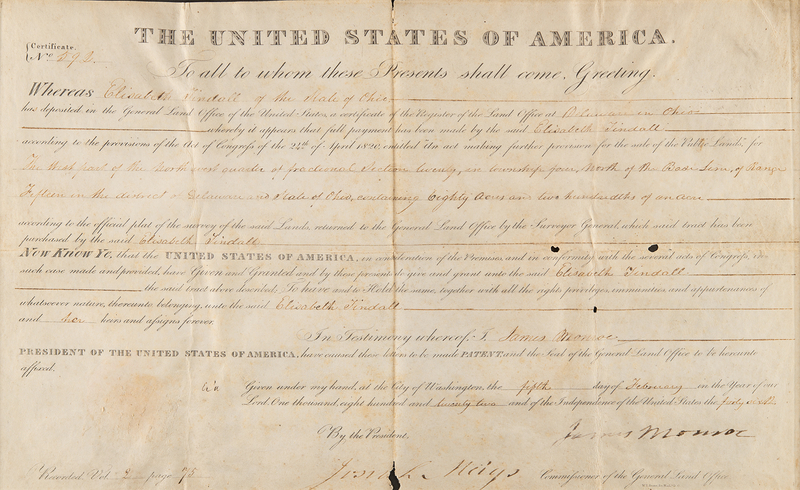 THE UNITED STATES OF AMERICA.
Certificate.
No 592.
To all to whom these Presents shall come, Greeting:
Whereas Elisabeth Tindall of the State of Ohio
has deposited in the General Land Office of the United States, a certificate of the Register of the Land Office at Delaware in Ohio
whereby it appears that full payment has been made by the said Elisabeth Tindall
according to the provisions of the Act of Congress of the 24th of April 1820, entitled "An act making further provision for the sale of the Public Lands," for
The West part of the North west quarter of fractional Section twenty, in township four, North of the Base Line, of Range
Fifteen in the district of Delaware and State of Ohio, containing Eighty Acres and two hundredths of an acre
according to the official plat of the survey of the said Lands, returned to the General Land Office by the Surveyor General, which said tract has been
purchased by the said Elisabeth Tindall
Now Know Ye, that the UNITED STATES OF AMERICA, in consideration of the Premises, and in conformity with the several acts of Congress, in
such case made and provided, have Given and Granted and by these presents do give and grant unto the said Elisabeth Tindall
the said tract above described: To have and to Hold the same, together with all the rights, privileges, immunities, and appurtenances of
whatsoever nature, thereunto belonging, unto the said Elisabeth Tindall
and her heirs and assigns forever.
In Testimony whereof, I James Monroe
PRESIDENT OF THE UNITED STATES OF AMERICA, have caused these letters to be made PATENT, and the Seal of the General Land Office to be hereunto
affixed.
Given under my hand, at the City of Washington, the fifth day of February in the Year of our
Lord One thousand, eight hundred and twenty two and of the Independence of the United States the forty sixth
By the President,
James Monroe
Recorded Vol 2 page 75
Commissioner of the General Land Office